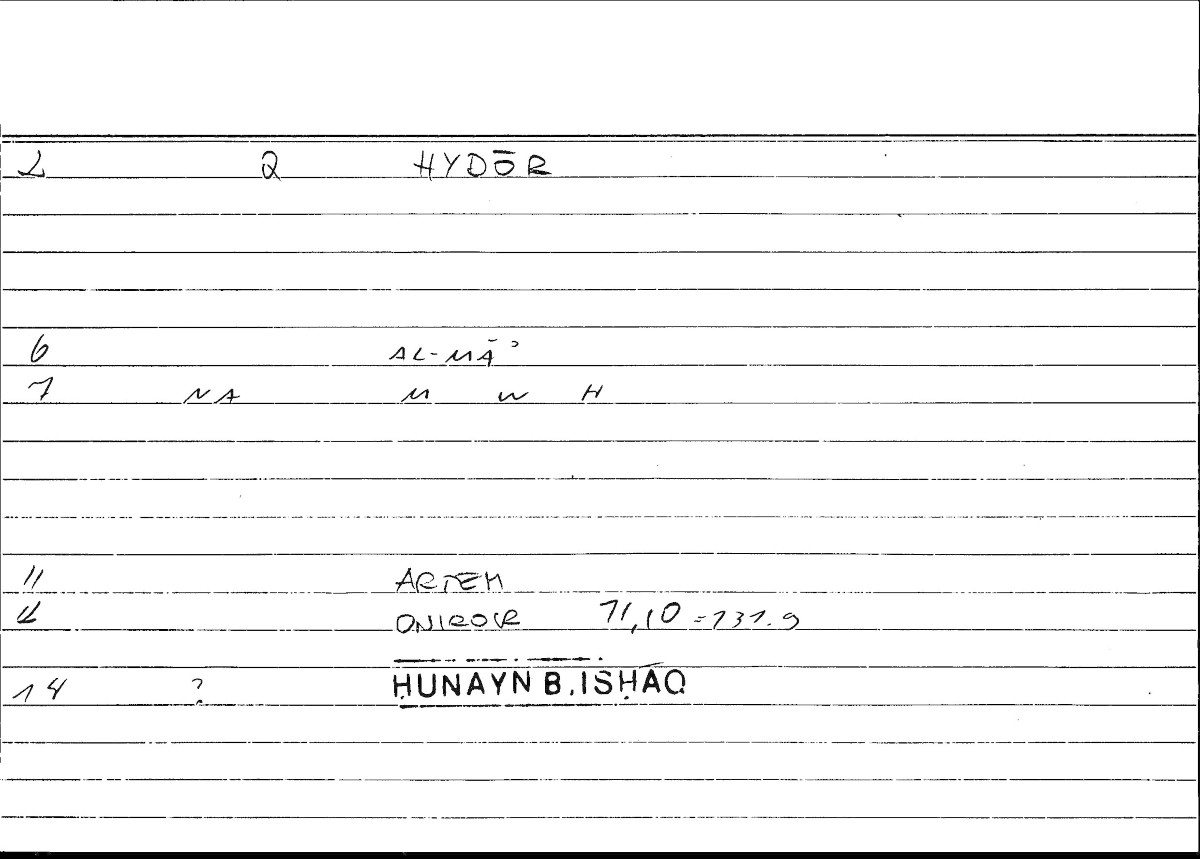 2 Q HYDŌR
6 AL-MĀʾ
7 NA M W H
11 ARTEM
12 ONIROCR 71,10 = 131.9
14 ? ḤUNAYN B. ISḤĀQ